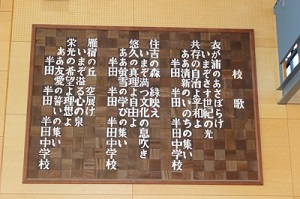 校歌
衣が浦のあさぼらけ
いまぞさす世紀の光
共存の自治よ平和よ
ああ清新のいのちの集い
半田 半田 半田中学校
住吉の森 緑映え
いまぞ満つ文化の息吹き
悠久の真理よ自由よ
ああ蛍雪の学びの集い
半田 半田 半田中学校
雁宿の丘 空展け
いまぞ滾る心の泉
栄光の希望よ理想よ
ああ友愛の誓いの集い
半田 半田 半田中学校